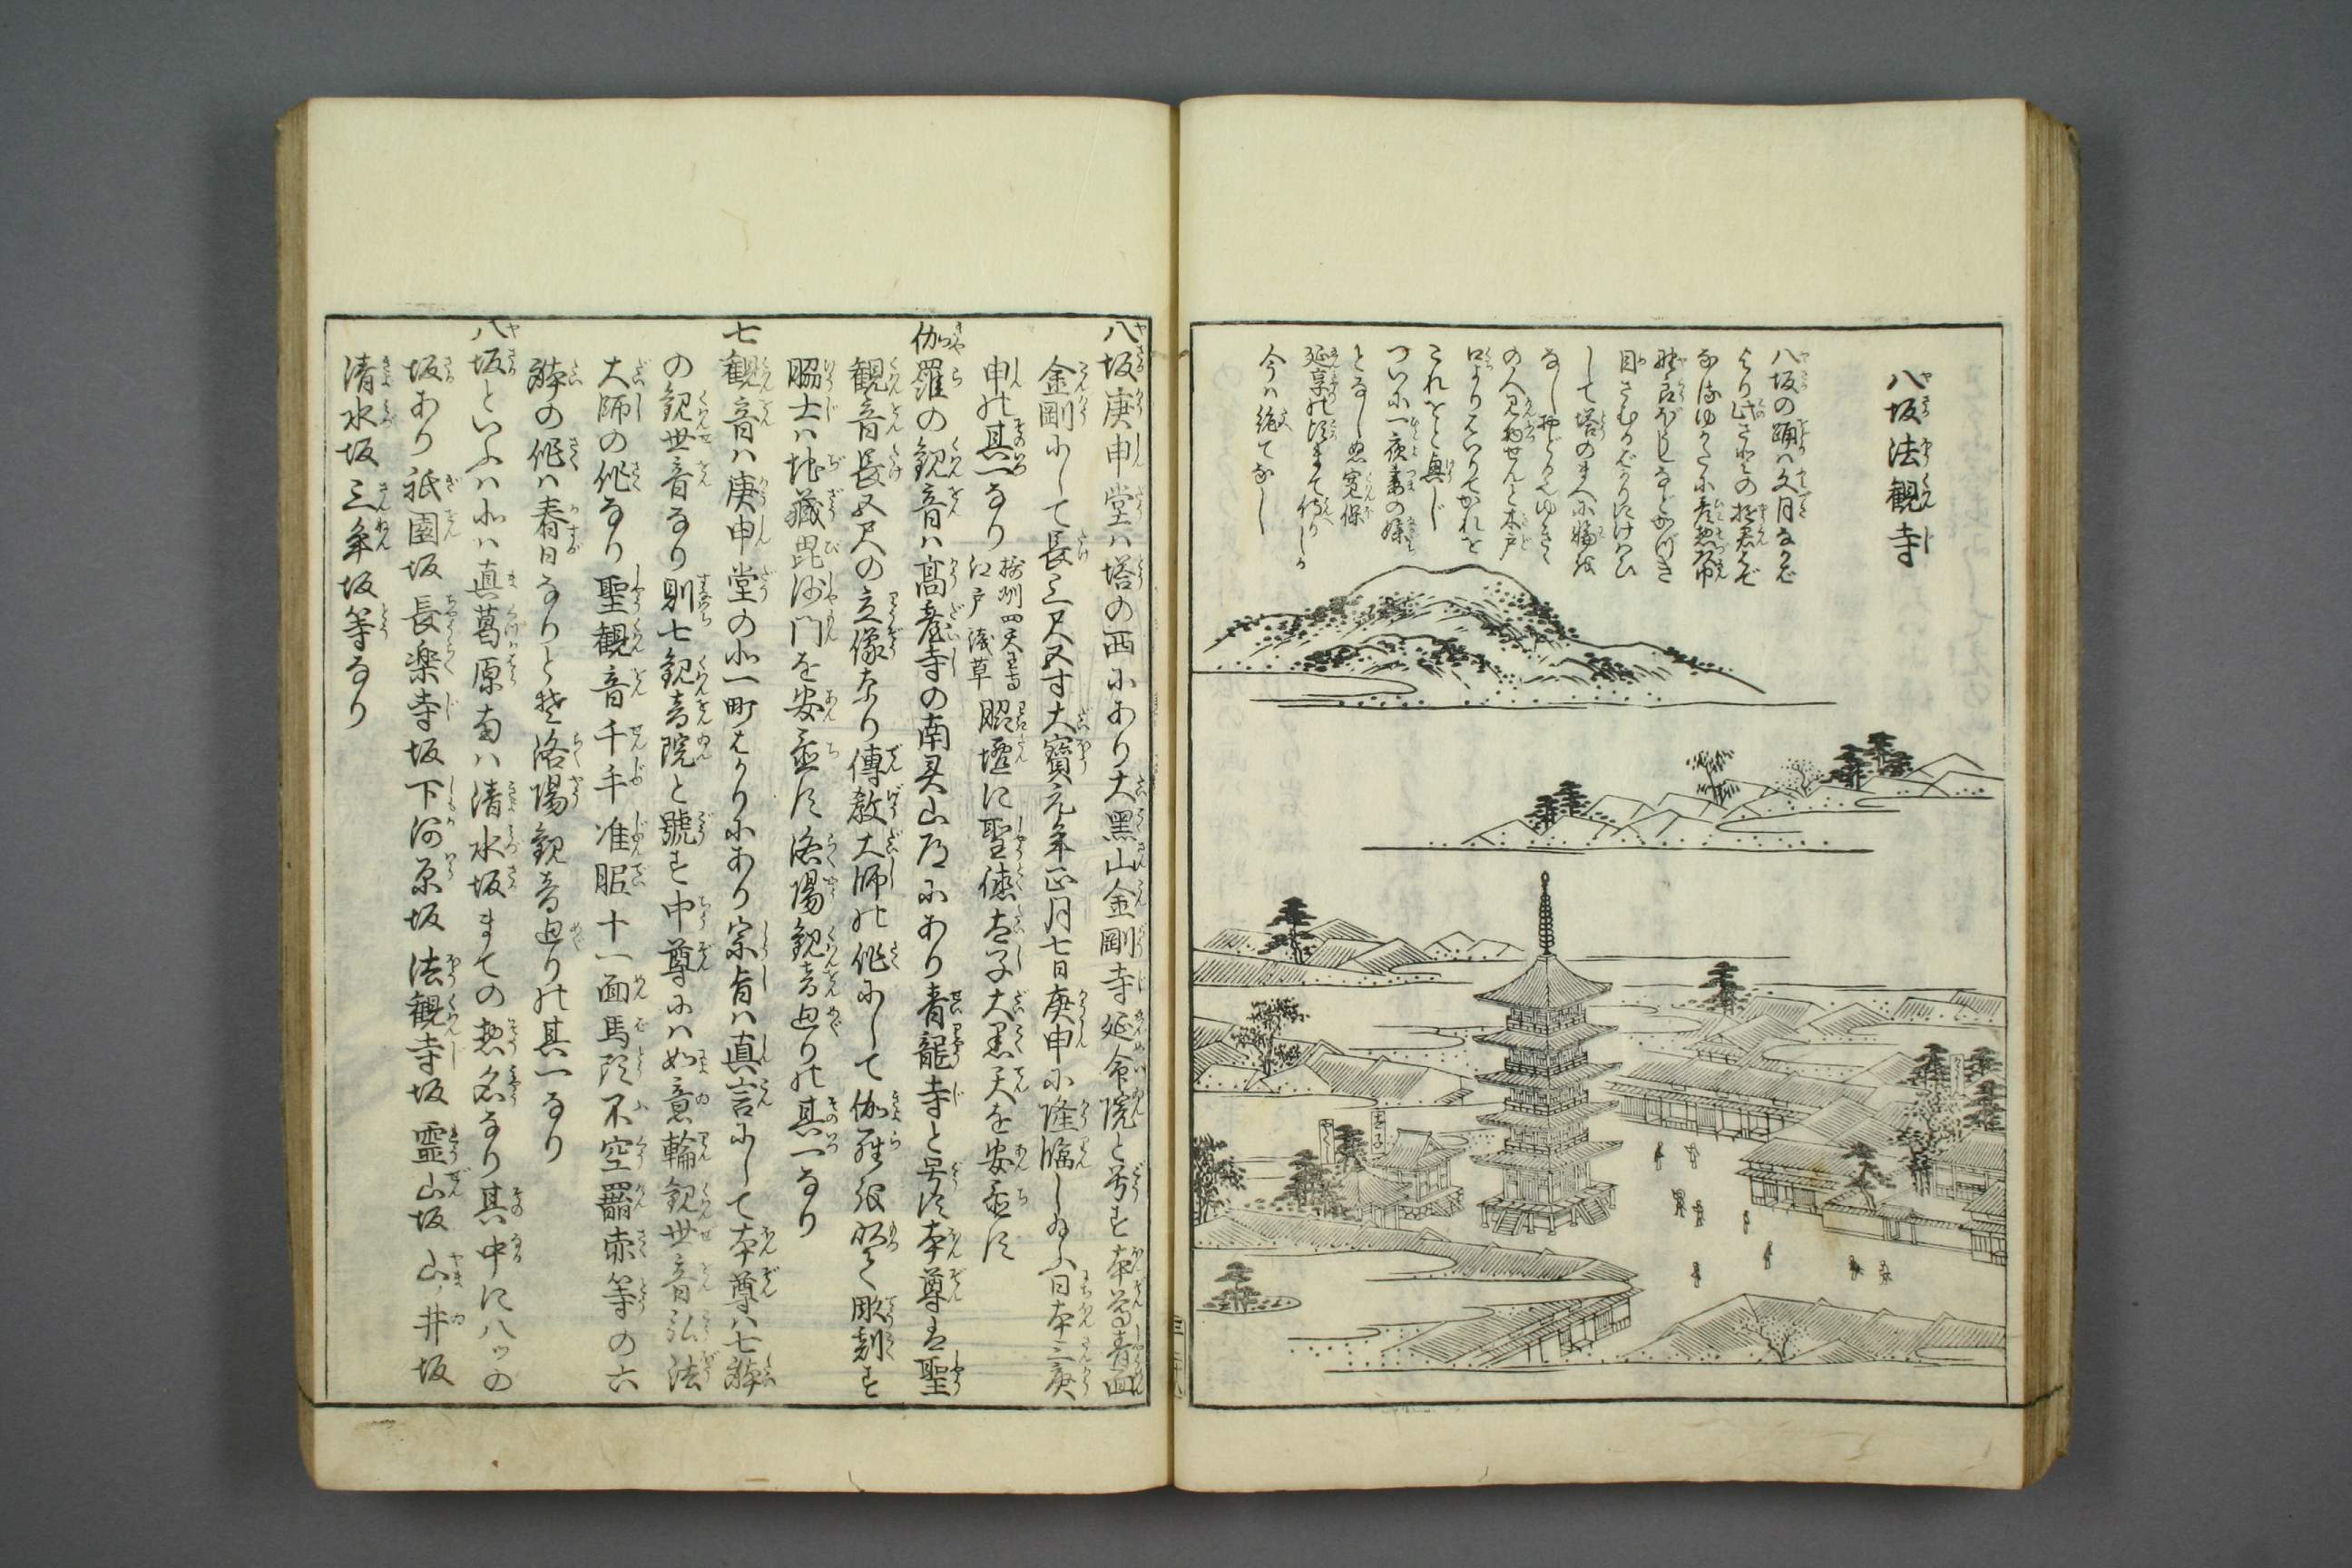 八坂法観寺
八坂の踊ハ文月なかば
より此さとの遊君ども
して塔のまへに
なし
の人見物せんと木戸
口より
これをと興じ
つひに一夜妻の媒
となしぬ寛保
延享の頃まで侍りしが
今ハ絶てなし
太子
八坂庚申堂ハ塔の西にあり大黒山金剛寺延命院と号す本尊青面
金剛にして長三尺五寸大寳元年正月七日庚申に降臨し給ふ日本三庚
申の其一なり摂州四天王寺
江戸浅草脇壇に聖徳太子大黒天を安置す
伽羅の観音ハ高臺寺の南霊山道にあり青龍寺と号す本尊は聖
観音長五尺の立像なり傳教大師の作にして伽羅を以て彫刻す
脇士ハ地藏毘沙門を安置す洛陽観音廻りの其一なり
七観音ハ庚申堂の北一町ばかりにあり宗旨ハ真言にして本尊ハ七躰
の観世音なり則七観音院と號す中尊にハ如意輪観世音弘法
大師の作なり聖観音千手准胝十一面馬頭不空羂索等の六
躰の作ハ春日なりとぞ洛陽観音廻りの其一なり
八坂といふハ北ハ真葛原南ハ清水坂まての惣名なり其中に八ツの
坂あり祇園坂長楽寺坂下河原坂法観寺坂霊山坂山ノ井坂
清水坂三年坂等なり